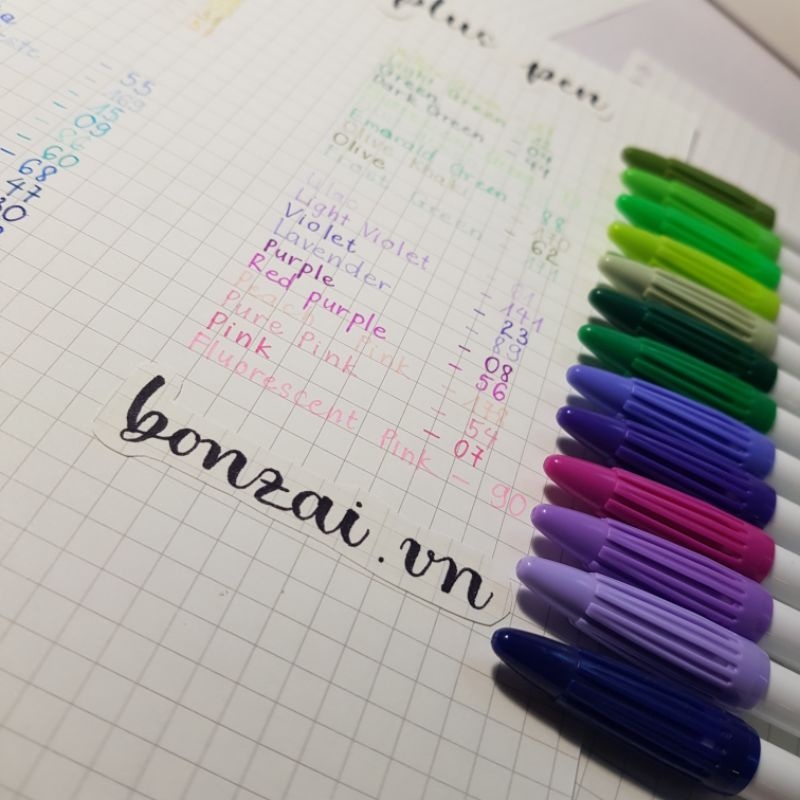 plus pen
- 55
- 15
- 09
- 60
- 68
47
30
Light Green
Green - 04
Dark Green
Emerald Green - 88
Olive Khaki
Olive - 62
Frost Green
Lilac
Light Violet - 141
Violet - 23
Lavender - 89
Purple - 08
Red purple - 56
Peach Pink
Pure Pink - 54
Pink - 07
Fluorescent Pink - 90
bonzai.vn